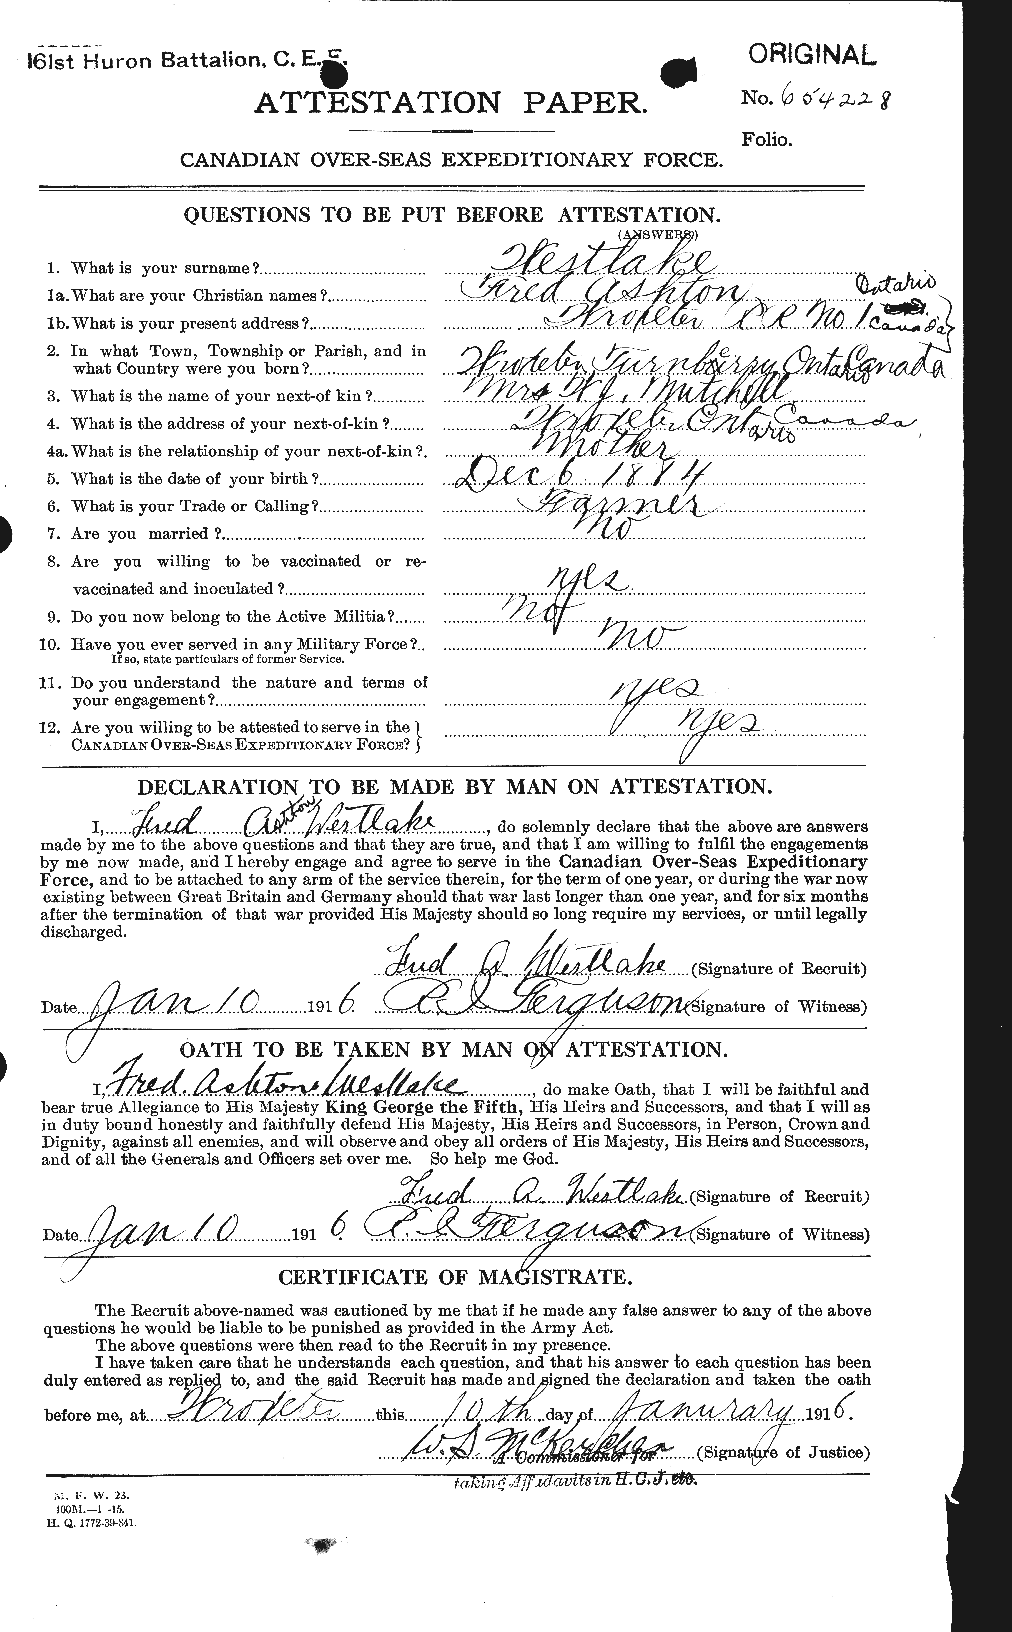 161st Huron Battalion, C. E. F.
ORIGINAL
ATTESTATION PAPER.
No. 654228
Folio.
CANADIAN OVER-SEAS EXPEDITIONARY FORCE.
QUESTIONS TO BE PUT BEFORE ATTESTATION.
(ANSWERS)
1. What is your surname? Westlake
1a. What are your Christian names? Fred Ashton
1b. What is your present address? Wroxeter R R No 1 Ontario Canada
2. In what Town, Township or Parish, and in
what Country were you born? Wroxeter Turnberry Ontario Canada
3. What is the name of your next-of kin? Mrs W. J. Mitchell
4. What is the address of your next-of-kin? Wroxeter Ontario Canada
4a. What is the relationship of your next-of-kin? Mother
5. What is the date of your birth? Dec 6 1894
6. What is your Trade or Calling? Farmer
7. Are you married? No
8. Are you willing to be vaccinated or re-
vaccinated and inoculated? yes
9. Do you now belong to the Active Militia? No
10. Have you ever served in any Military Force? No
If so, state particulars of former Service.
11. Do you understand the nature and terms of
your engagement? yes
12. Are you willing to be attested to serve in the
CANADIAN OVER-SEAS EXPEDITIONARY FORCE? yes
DECLARATION TO BE MADE BY MAN ON ATTESTATION.
I, Fred Ashton Westlake, do solemnly declare that the above are answers
made by me to the above questions and that they are true, and that I am willing to fulfil the engagements
by me now made, and I hereby engage and agree to serve in the Canadian Over-Seas Expeditionary
Force, and to be attached to any arm of the service therein, for the term of one year, or during the war now
existing between Great Britain and Germany should that war last longer than one year, and for six months
after the termination of that war provided His Majesty should so long require my services, or until legally
discharged.
Fred A. Westlake (Signature of Recruit)
Date Jan 10 1916. Ferguson (Signature of Witness)
OATH TO BE TAKEN BY MAN ON ATTESTATION.
I, Fred. Ashton Westlake, do make Oath, that I will be faithful and
bear true Allegiance to His Majesty King George the Fifth, His Heirs and Successors, and that I will as
in duty bound honestly and faithfully defend His Majesty, His Heirs and Successors, in Person, Crown and
Dignity, against all enemies, and will observe and obey all orders of His Majesty, His Heirs and Successors,
and of all the Generals and Officers set over me. So help me God.
Fred A. Westlake (Signature of Recruit)
Date Jan 10 1916. Ferguson (Signature of Witness)
CERTIFICATE OF MAGISTRATE.
The Recruit above-named was cautioned by me that if he made any false answer to any of the above
questions he would be liable to be punished as provided in the Army Act.
The above questions were then read to the Recruit in my presence.
I have taken care that he understands each question, and that his answer to each question has been
duly entered as replied to, and the said Recruit has made and signed the declaration and taken the oath
before me, at Wroxeter this 10th day of Janurary 1916.
W. S. McKercher (Signature of Justice)
A Commissioner for
taking Affidavits in H. C. J. etc.
M. F. W. 23.
H. Q. 1772-39-841.